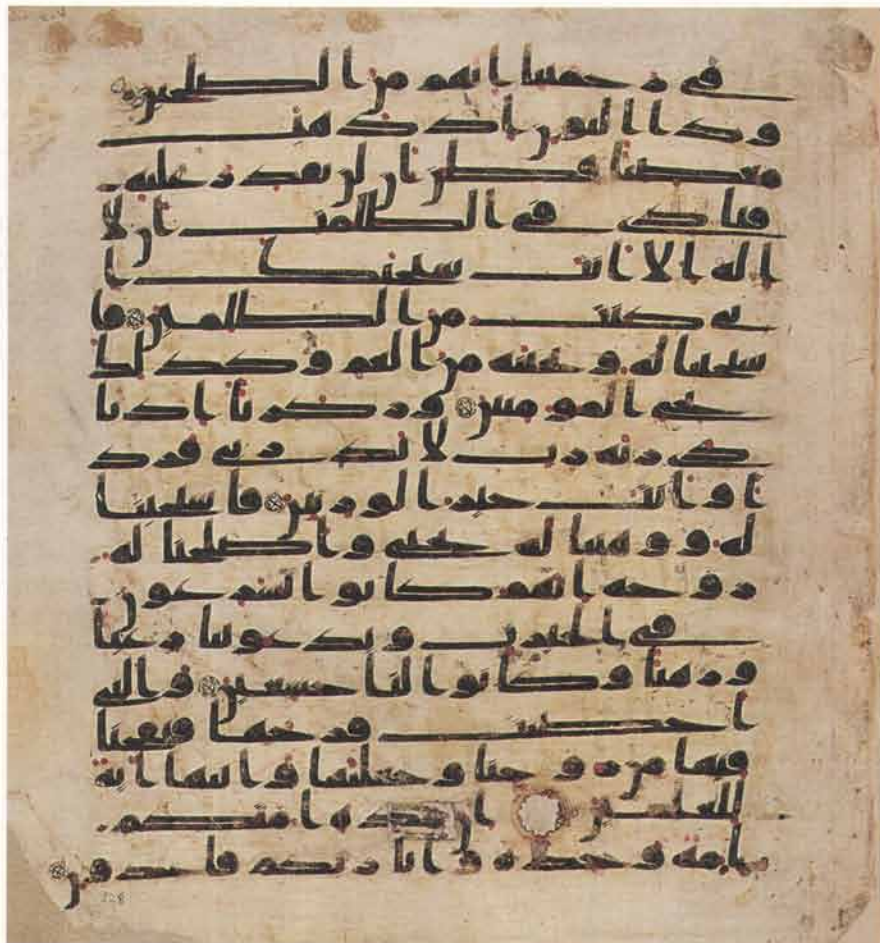 في رحمتنا انهم من الصلحين
وذا النون اذ ذهب
مغضبا فظن ان لن نقدر عليه
فنادى في الظلمت ان لا
اله الا انت سبحنك ا
ني كنت من الظلمين فا
ستجبنا له ونجينه من الغم وكذلك
نجي المومنين وزكريا اذ نا
دى ربه رب لا تذرني فرد
ا وانت خير الورثين فاستجبنا
له ووهبنا له يحيى واصلحنا له
زوجه انهم كانوا يسرعون
في الخيرت ويدعوننا رغبا
ورهبا وكانوا لنا خشعين والتي
احصنت فرجها فنفخنا
فيها من روحنا وجعلنها وابنها اية
للعلمين ان هذه امتكم
امة وحدة وانا ربكم فاعبدون